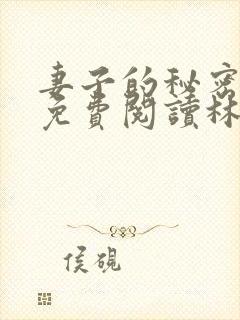 妻子的秘密
免費閱讀林
侯硯